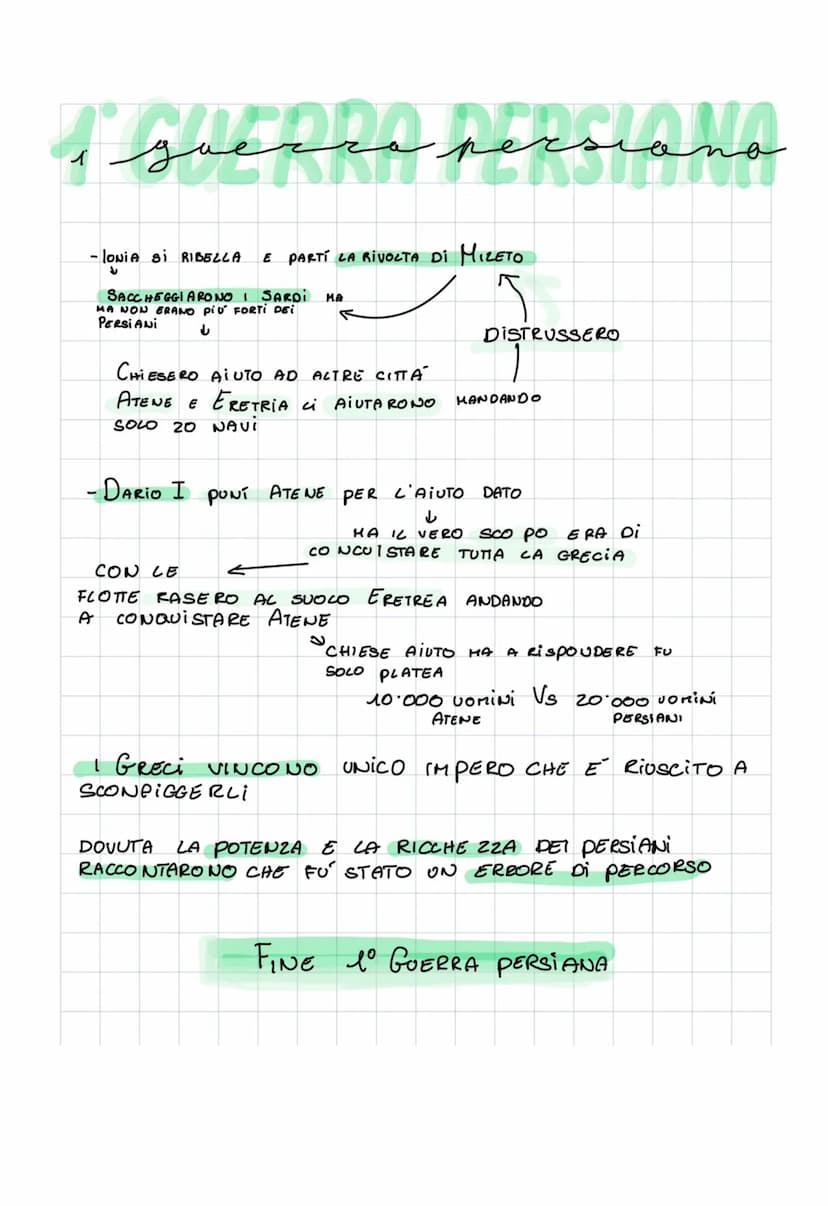 1° GUERRA PERSIANA
1 guerra persiana
- IONIA SI RIBELLA E PARTÍ LA RIVOLTA DI MILETO
SACCHEGGIARONO I SARDI MA
MA NON ERANO PIÚ FORTI DEI
PERSIANI
DISTRUSSERO
CHIESERO AIUTO AD ALTRE CITTÁ
ATENE E ERETRIA LI AIUTARONO MANDANDO
SOLO 20 NAVI
- DARIO I PUNÍ ATENE PER L'AIUTO DATO
MA IL VERO SCOPO ERA DI
CONCUISTARE TUTTA LA GRECIA
CON LE
FLOTTE RASERO AL SUOLO ERETREA ANDANDO
A CONQUISTARE ATENE
CHIESE AIUTO MA A RISPONDERE FU
SOLO PLATEA
10.000 UOMINI VS 20.000 UOMINI
ATENE PERSIANI
I GRECI VINCONO UNICO IMPERO CHE É RIUSCITO A
SCONFIGGERLI
DOVUTA LA POTENZA E LA RICCHEZZA DEI PERSIANI
RACCONTARONO CHE FÚ STATO UN ERRORE DI PERCORSO
FINE 1° GUERRA PERSIANA